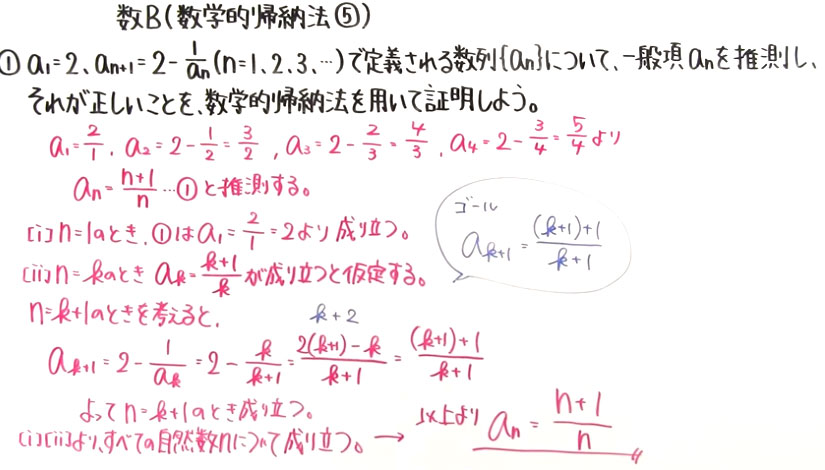 数B(数学的帰納法⑤)
① a₁=2、aₙ₊₁=2-1/aₙ(n=1、2、3、…)で定義される数列{aₙ}について、一般項aₙを推測し、
それが正しいことを、数学的帰納法を用いて証明しよう。
a₁=2/1, a₂=2-1/2=3/2, a₃=2-2/3=4/3, a₄=2-3/4=5/4より
aₙ=(n+1)/n…①と推測する。
[i] n=1のとき、①はa₁=2/1=2より成り立つ。
ゴール
aₖ₊₁=((k+1)+1)/(k+1)
[ii] n=kのとき aₖ=(k+1)/kが成り立つと仮定する。
n=k+1のときを考えると、
k+2
aₖ₊₁=2-1/aₖ=2-k/(k+1)=(2(k+1)-k)/(k+1)=((k+1)+1)/(k+1)
よってn=k+1のとき成り立つ。
[i][ii]より、すべての自然数nについて成り立つ。→ 以上より aₙ=(n+1)/n